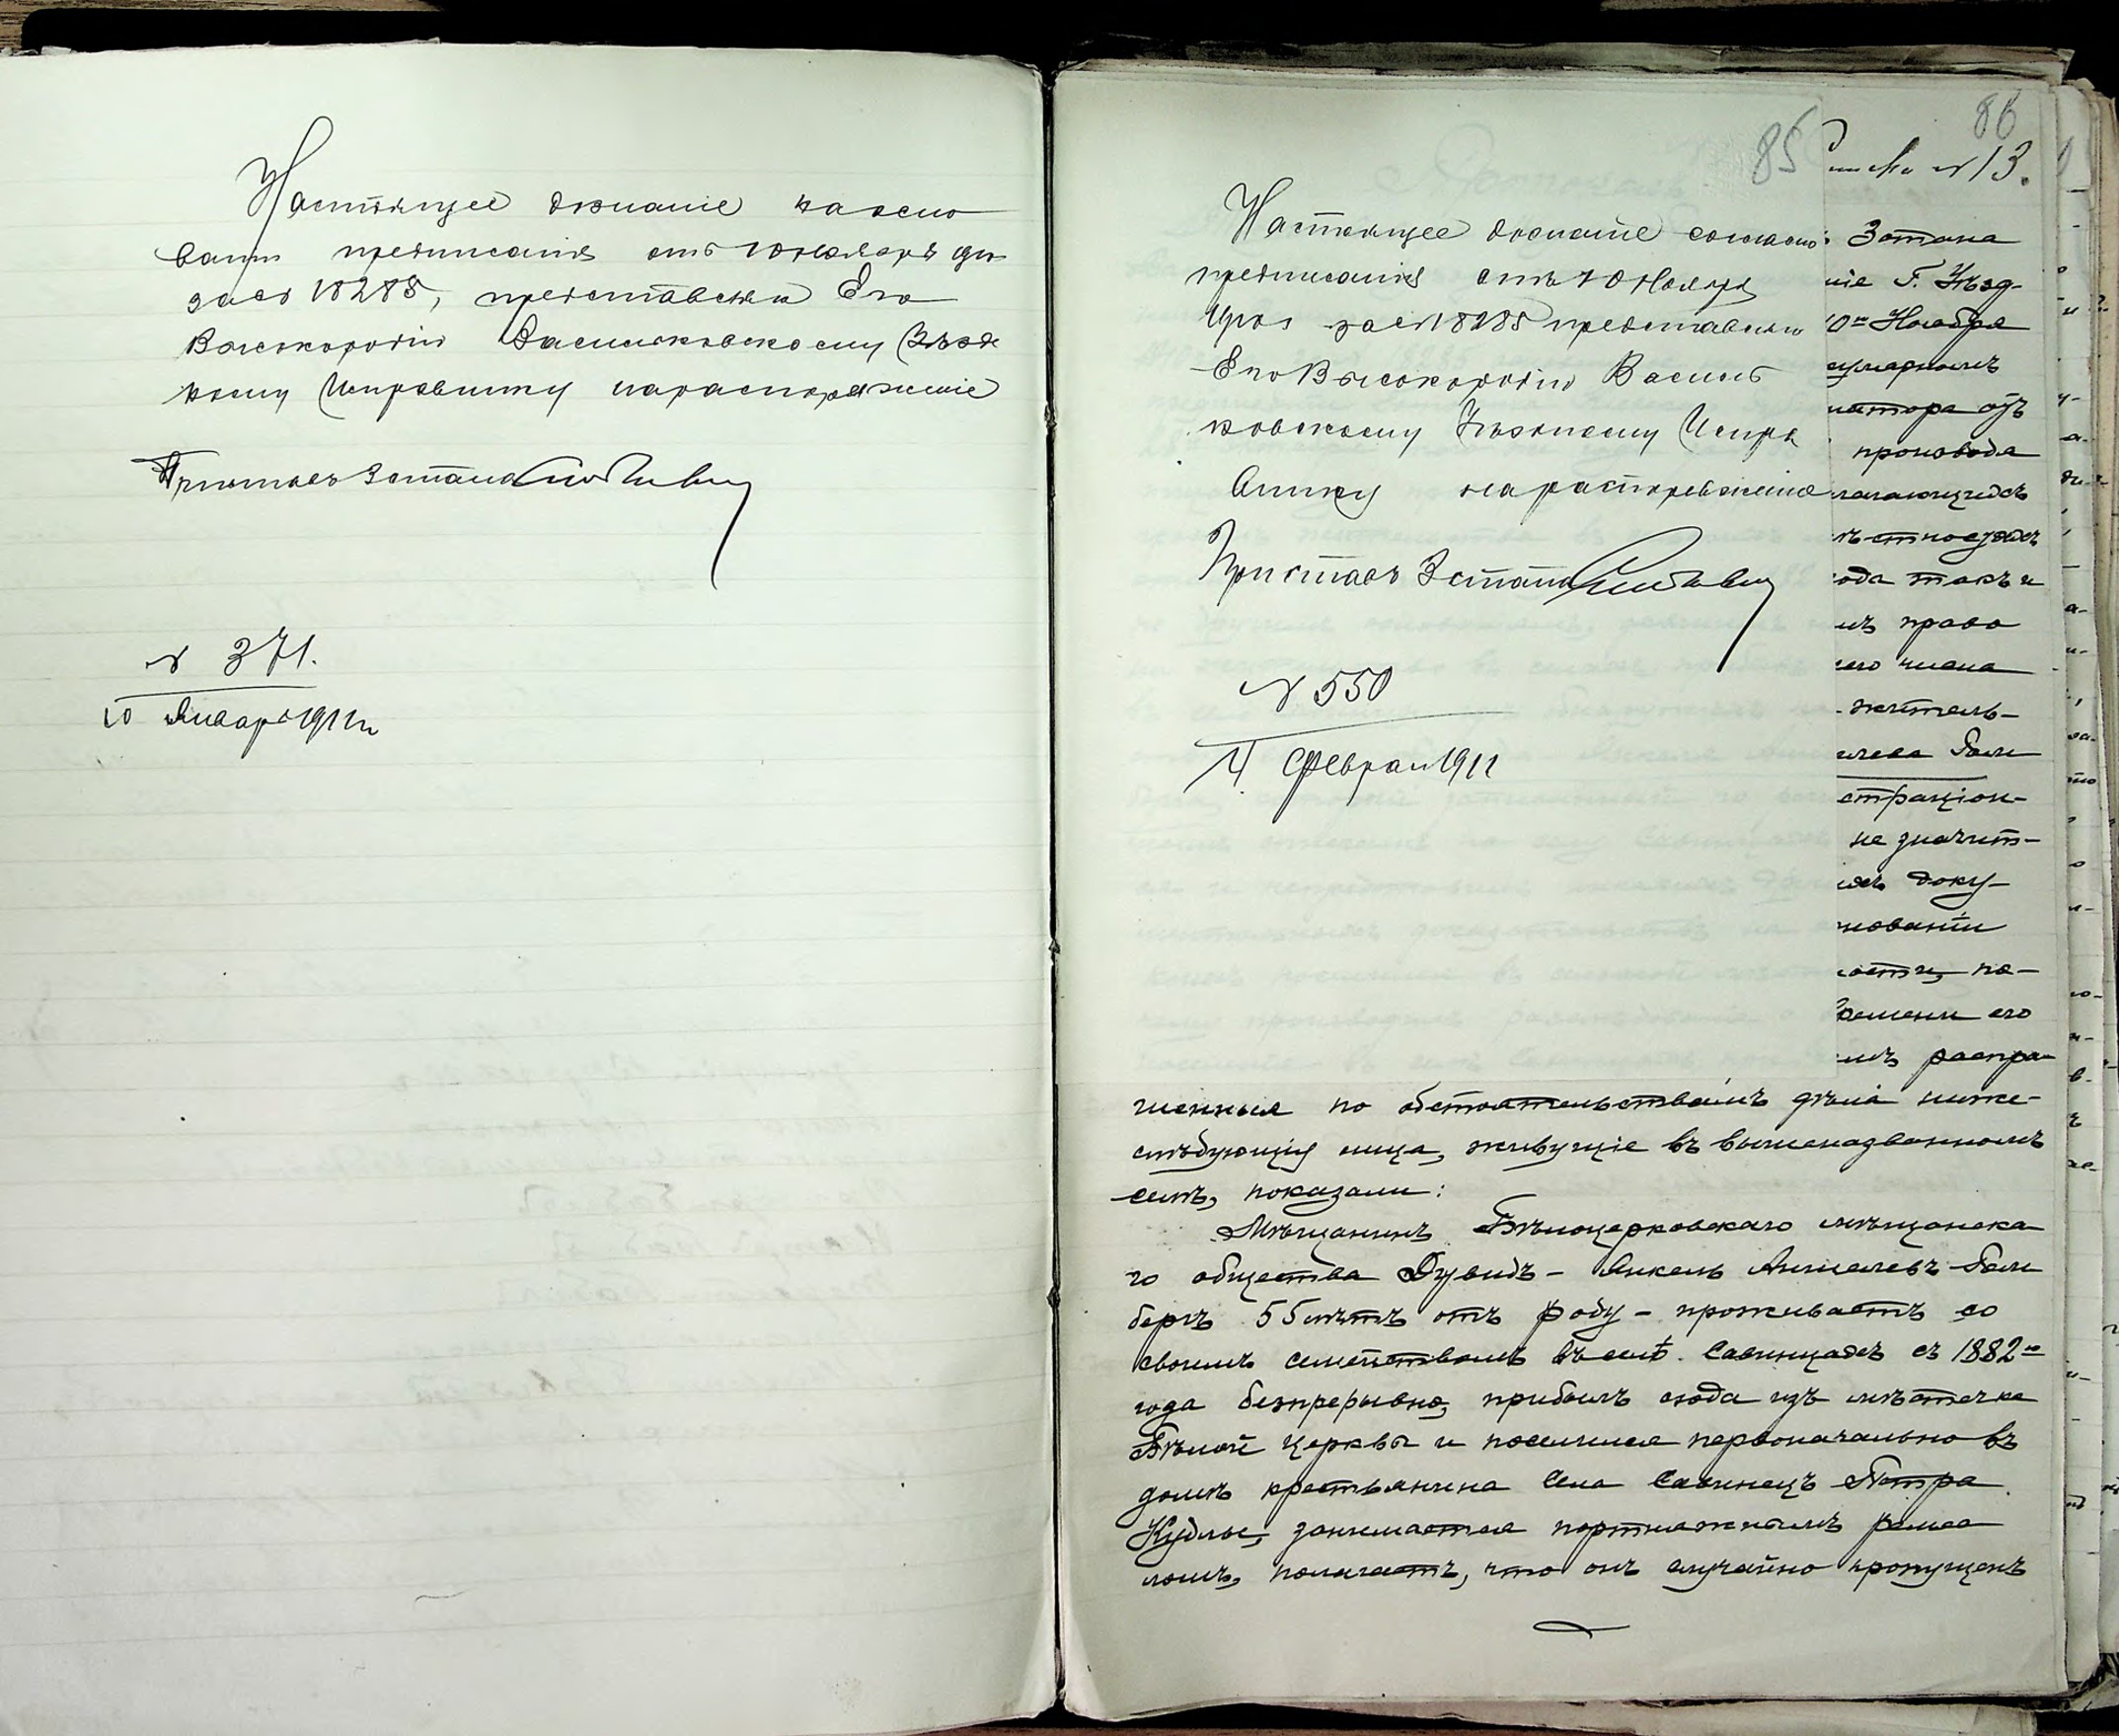 Настоящее дознаніе на осно
ваніи предписанія отъ 10 Ноября
за № 18285, представляю Его
Высокородію Васильковскому Уѣзд
ному Исправнику на распоряженіе
Приставъ 3 стана
№ 371.
10 Января 1911 г
85
Настоящее дознаніе согласно
предписанія отъ 10 Ноября
за № 18285 представляю
Его Высокородію Василь
ковскому Уѣздному Испра
внику на распоряженіе
Приставъ 3 стана
№ 550
4 Февраля 1911
86
№ 13.
3 стана
ніе Г. Уѣзд-
10го Ноября
циркулярномъ
натора объ
производа
ода такъ и
их право
его числа
житель-
страціон-
не значит-
ихъ доку-
новании
ности, по-
времени его
распро
шенныя по обстоятельствамъ дѣла ниже-
слѣдующія лица, живущіе въ вышеназванномъ
селѣ, показали:
Мѣщанинъ Бѣлоцерковскаго мѣщанска
го общества Дувидъ-Янкель Аншелевъ Гольд
бергъ 55 лѣтъ отъ роду - проживаетъ со
своимъ семействомъ въ селѣ Савинцахъ съ 1882го
года безпрерывно, прибылъ сюда изъ мѣстечка
Бѣлой церкви и поселился первоначально въ
домѣ крестьянина села Савинецъ Петра
занимается портняжнымъ ремес
ломъ, полагаетъ, что онъ случайно пропущенъ